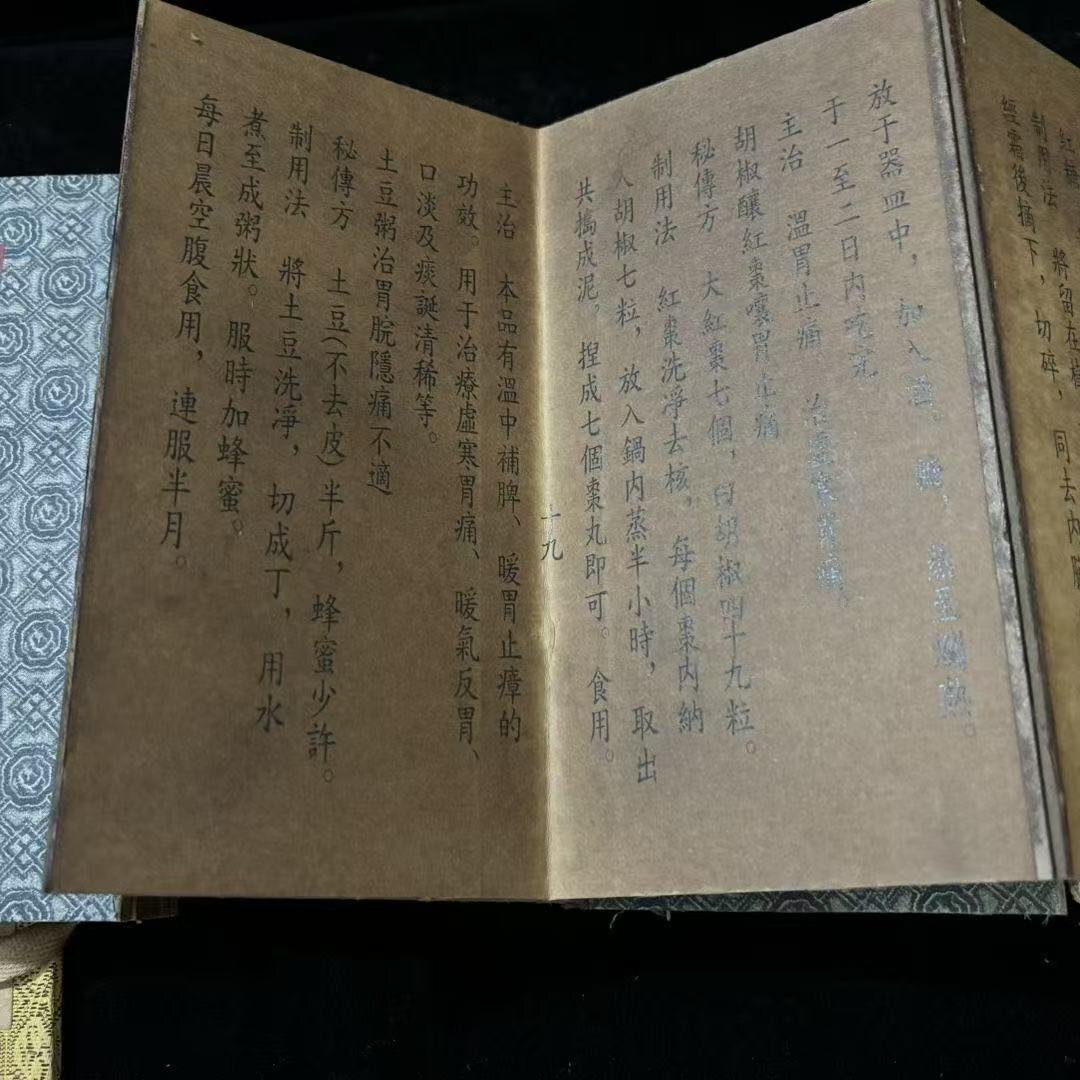 制用法 將留在
經霜後摘下，切碎，同去内
放于器皿中，加入
于一至二日内吃完
主治 溫胃止痛 治虛寒胃痛。
胡椒釀紅棗嚷胃止痛
秘傳方 大紅棗七個，白胡椒四十九粒。
制用法 紅棗洗淨去核，每個棗内納
入胡椒七粒，放入鍋内蒸半小時，取出
共搗成泥，捏成七個棗丸即可。食用。
十九
主治 本品有溫中補脾、暖胃止瘴的
功效。用于治療虛寒胃痛、暖氣反胃、
口淡及痰誕清稀等。
土豆粥治胃脘隱痛不適
秘傳方 土豆(不去皮)半斤，蜂蜜少許。
制用法 將土豆洗淨，切成丁，用水
煮至成粥狀。服時加蜂蜜。
每日晨空腹食用，連服半月。